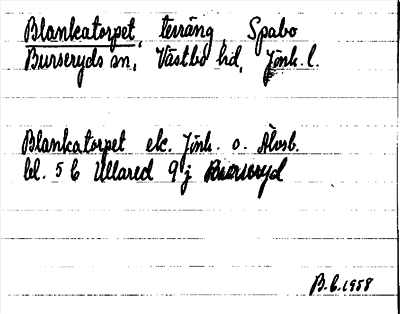 Blankatorpet, terräng, Spabo
Burseryds sn, Västbo hd, Jönk. l.
Blankatorpet ek. Jönk. o. Älvsb.
bl. 5 C Ullared 9 j Burseryd
B.C. 1958